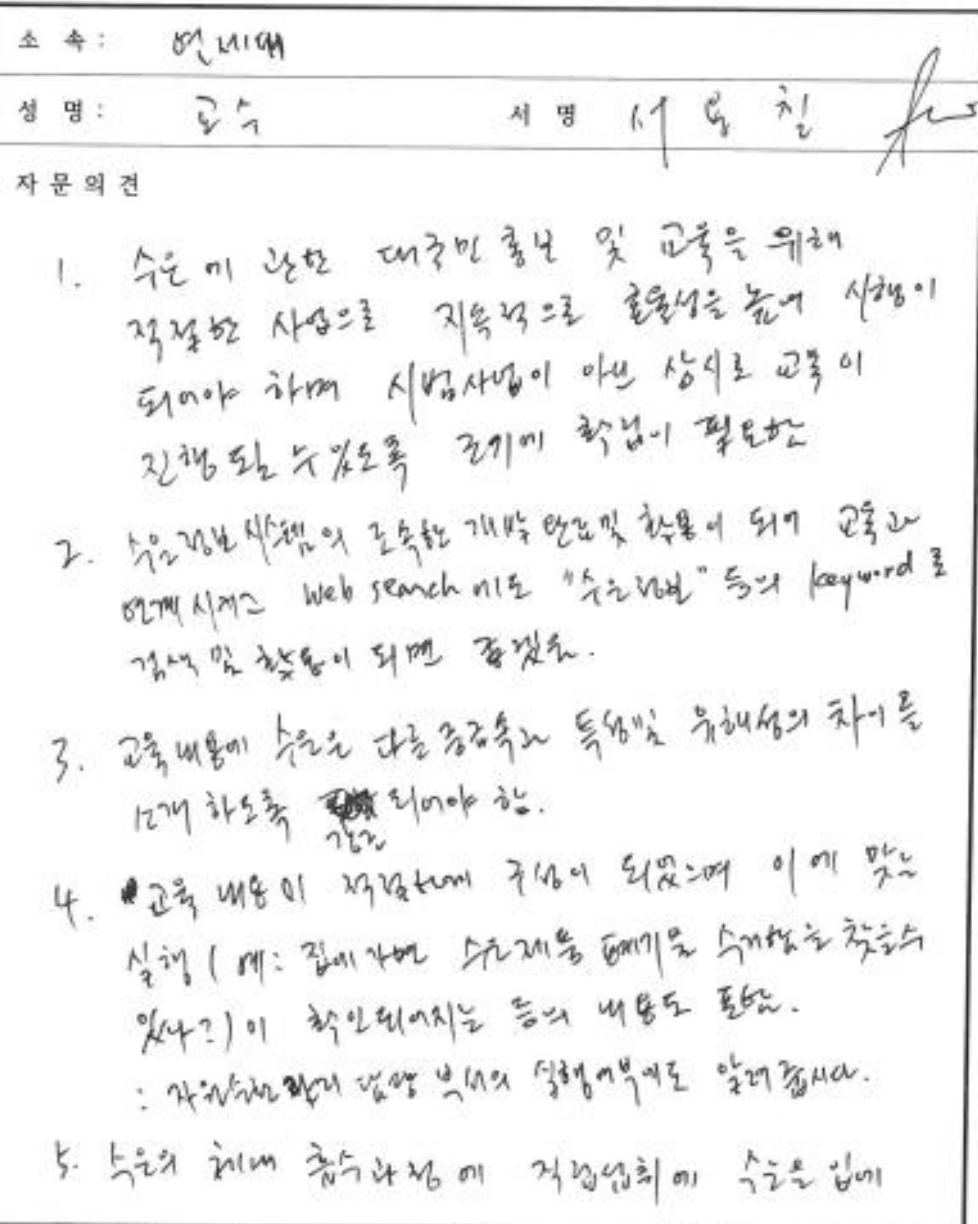 소 속 : 연세대
성 명 : 교수 서 명 서 용 칠
자 문 의 견
1. 수은에 관한 대국민 홍보 및 교육을 위해
적절한 사업으로 지속적으로 효율성을 높여 시행이
되어야 하며 시범사업이 아닌 상시로 교육이
진행 될 수 있도록 조기에 확립이 필요함
2. 수은정보시스템의 조속한 개발 완료 및 활용이 되어 교육과
연계시켜 web search에도 "수은정보" 등의 keyword로
검색 및 활용이 되면 좋겠음.
3. 교육내용에 수은은 다른 중금속과 특성 및 유해성의 차이를
소개 하도록 되어야 함.
4. 교육 내용이 적절하게 구성이 되었으며 이에 맞는
실행 (예: 집에 가면 수은제품 폐기물 수거함을 찾을수
있나?)이 확인되어지는 등의 내용도 포함.
: 자원순환 담당 부서의 실행여부에도 알려줍시다.
5. 수은의 체내 흡수과정에 직접섭취에 수은을 입에